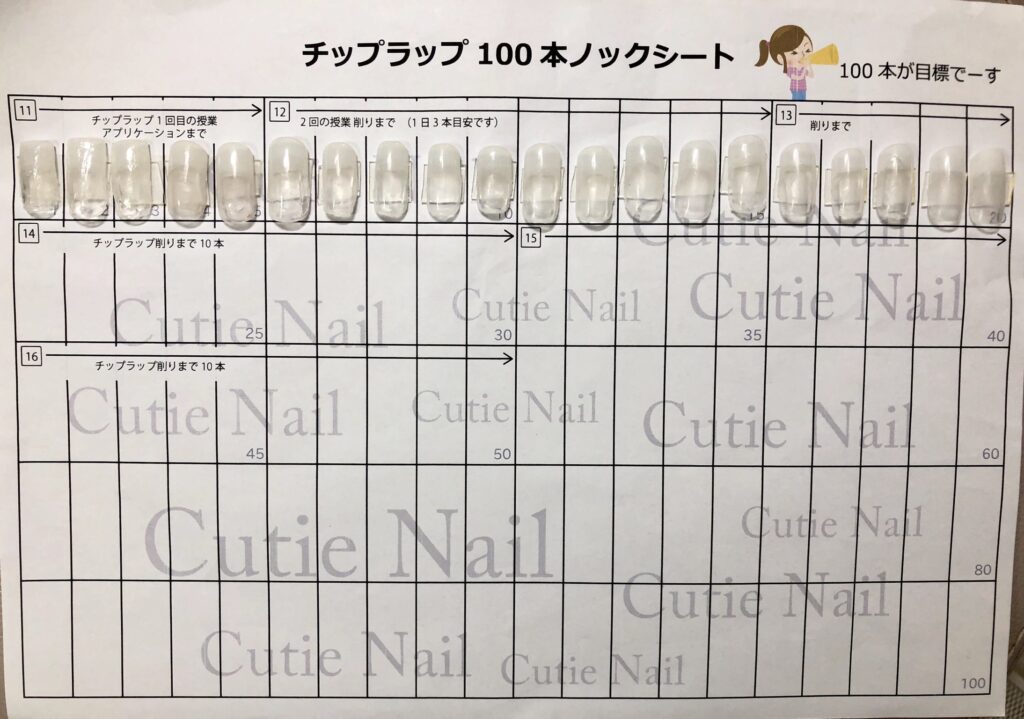 チップラップ 100 本ノックシート
100 本が目標でーす
11
チップラップ 1 回目の授業
アプリケーションまで
12
2 回の授業 削りまで （1 日 3 本目安です）
13
削りまで
3
4
5
10
15
20
Cutie Nail
14
チップラップ削りまで 10 本
15
Cutie Nail
Cutie Nail
Cutie Nail
25
30
35
40
16
チップラップ削りまで 10 本
Cutie Nail
Cutie Nail
Cutie Nail
45
50
60
Cutie Nail
Cutie Nail
80
Cutie Nail
Cutie Nail
Cutie Nail
100